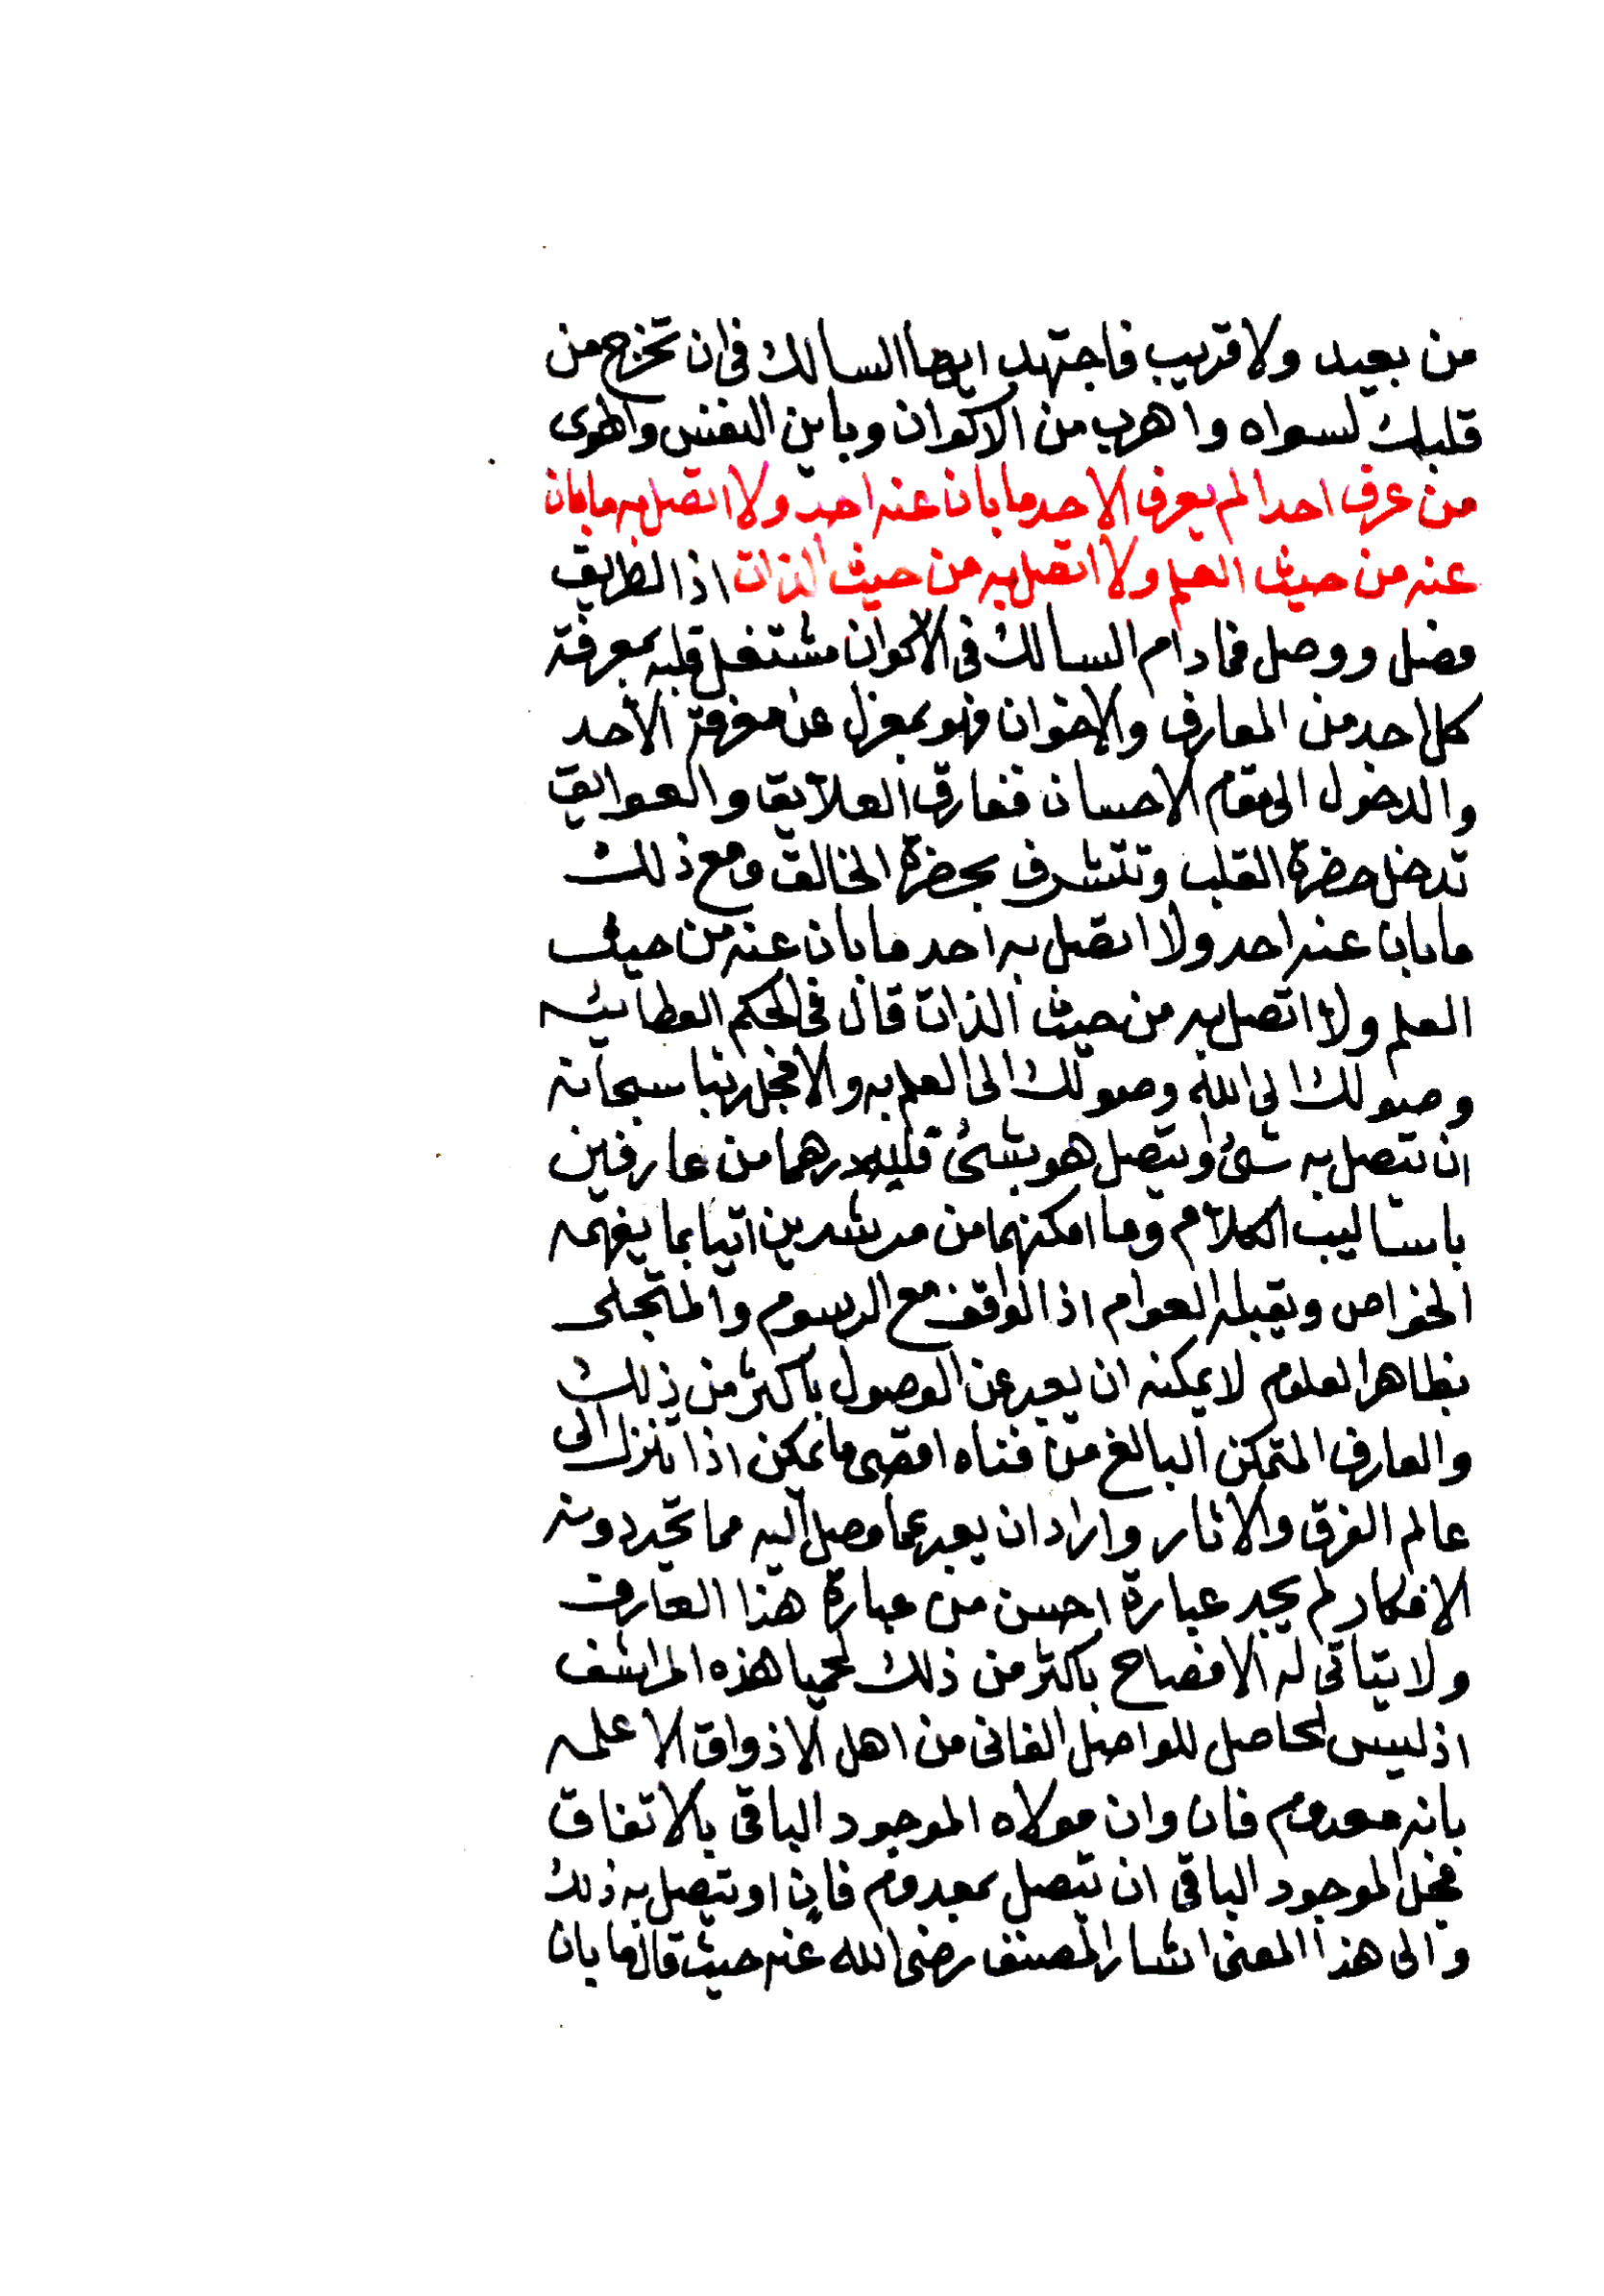 من بعيد ولا قريب فاجتهد ايها السالك في ان تخرج من
قلبك لسواه واهرب من الاكوان وباين النفس والهوى
من عرف احدا لم يعرف الاحد ما بان عنه احد ولا اتصل به ما بان
عنه من حيث العلم ولا اتصل به من حيث الذات اذ الطريق
فصل ووصل فما دام السالك في الاكوان مشتغل قلبه بمعرفة
كل احد من المعارف والاخوان فهو بمعزل عن معرفة الاحد
والدخول الى مقام الاحسان ففارق العلايق والعوايق
تدخل حضرة القلب وتتشرف بحضرة الخالق ومع ذلك
ما بان عنه احد ولا اتصل به احد ما بان عنه من حيث
العلم ولا اتصل به من حيث الذات قال في الحكم العطائيه
وصولك الى الله وصولك الى العلم به والا فجل ربنا سبحانه
ان يتصل به شئ او يتصل هو بشئ فلله درهما من عارفين
باساليب الكلام وما امكنهما من مرشدين اتيا بما يفهمه
الخواص ويقبله العوام اذ الواقف مع الرسوم والمتجلى
بظاهر العلوم لا يمكنه ان يعبر عن الوصول باكثر من ذلك
والعارف المتمكن البالغ من فناه اقصى ما يمكن اذا تنزل الى
عالم الفرق والاثار واراد ان يعبر عما وصل اليه مما تحير دونه
الافكار لم يجد عبارة احسن من عبارة هذا العارف
ولا يتاتى له الافصاح باكثر من ذلك لحميا هذه المراشف
اذ ليس الحاصل للواصل الفانى من اهل الاذواق الا علمه
بانه معدوم فان وان مولاه الموجود الباقى بالاتفاق
فجل الموجود الباقى ان يتصل بمعدوم فان او يتصل به ذلك
والى هذا المعنى اشار المصنف رضى الله عنه حيث قال ما بان